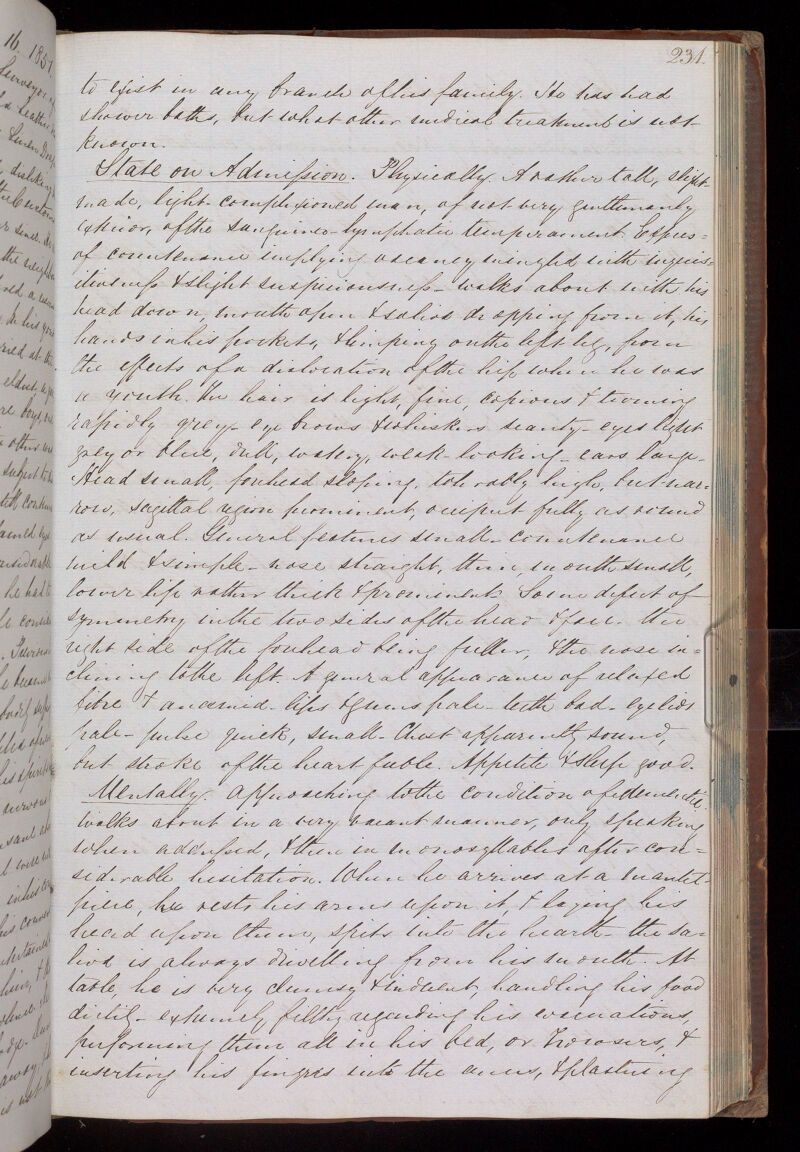 16. 1851.
231.
to exist in any branch of his family. He has had
shower baths, but what other medical treatment is not
known.
State on Admission. Physically. A rather tall, slight
made, light complexioned man, of not very gentlemanly
exterior, of the sanguineo-lymphatic temperament. Expres=
of countenance implying vacancy mingled with inquis=
itiveness & slight suspiciousness - walks about with his
head down, mouth open & saliva dropping from it, his
hands in his pockets, & limping on the left leg, from
the effects of a dislocation of the hip when he was
a youth. The hair is light, fine, copious & turning
rapidly grey - eye brows & whiskers scanty - eyes light
grey or blue, dull, watery, weak-looking - ears large -
Head small, forehead sloping, tolerably high, but nar=
row, sagittal region prominent, occiput fully as round
as usual. General features small - countenance
mild & simple - nose straight, thin, mouth small,
lower lip rather thick & prominent. Some defect of
symmetry in the two sides of the head & face - the
right side of the forehead being fuller, & the nose in=
clining to the left. A general appearance of relaxed
fibre & anaemia - lips & gums pale - teeth bad - eyelids
pale - pulse quick, small - Chest apparently sound,
but stroke of the heart feeble. Appetite & sleep good.
Mentally. Approaching to the condition of dementia.
walks about in a very vacant manner, only speaking
when addressed, & then in monosyllables after con=
siderable hesitation. When he arrives at a mantel-
piece, he rests his arms upon it, & laying his
head upon them, spits into the hearth - the sa=
liva is always drivelling from his mouth - At
table, he is very clumsy & indecent, handling his food
dirtily - extremely filthy regarding his evacuations,
performing them all in his bed, or trowsers, &
inserting his fingers into the anus, & plastering